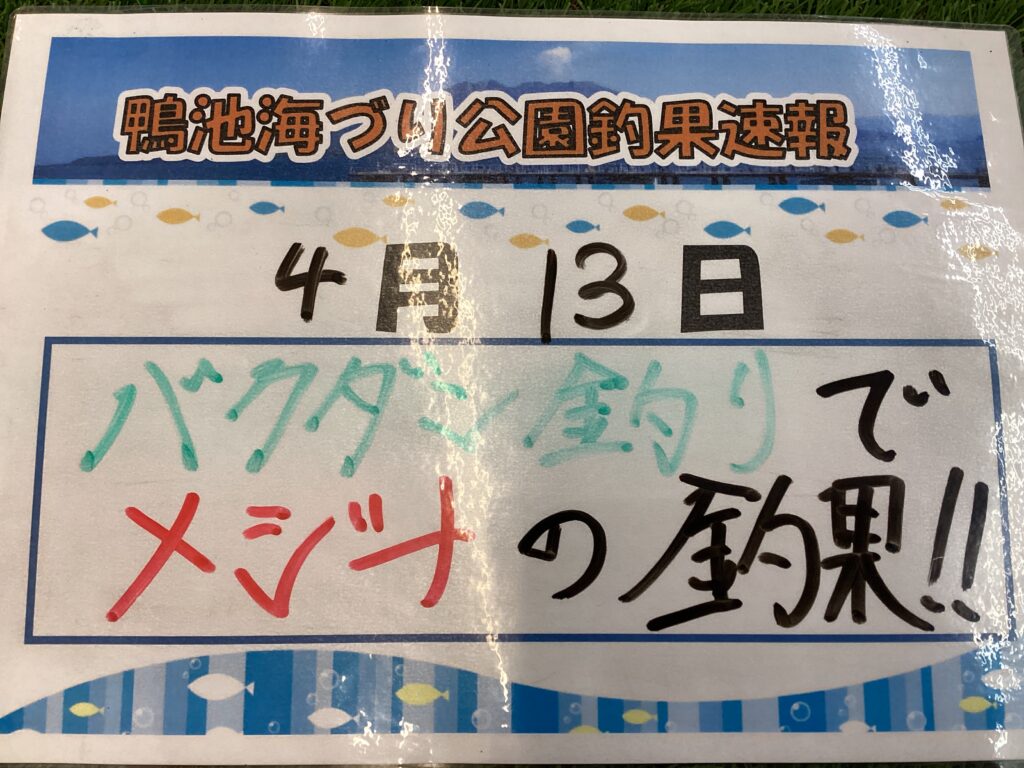 鴨池海づり公園釣果速報
4月13日
バクダン釣りで
メジナの釣果!!